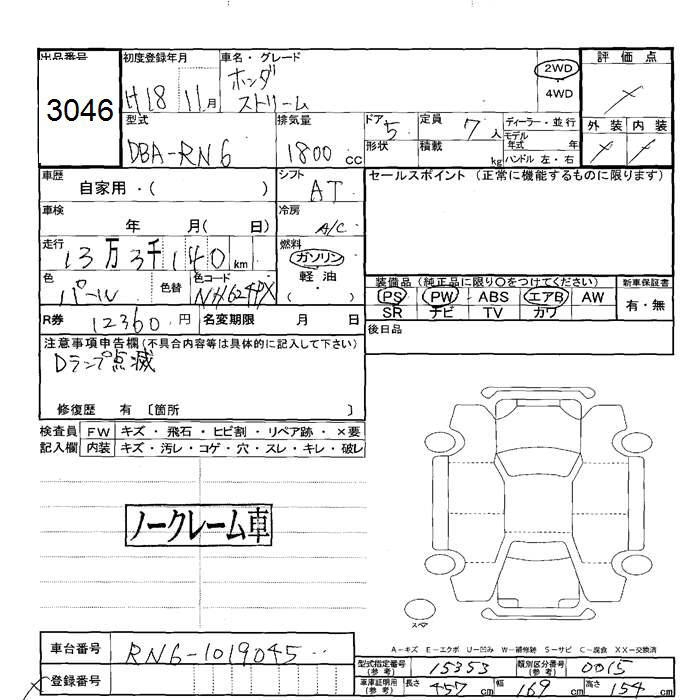 出品番号
3046
初度登録年月
H18 11月
車名・グレード
ホンダ
ストリーム
2WD
4WD
評価点
外装 内装
型式
DBA-RN6
排気量
1800 cc
ドア 5
形状
定員 7 人
積載 kg
ディーラー・並行
モデル年式 年
ハンドル 左・右
車歴
自家用・( )
シフト
AT
セールスポイント (正常に機能するものに限ります)
車検
年 月( 日)
冷房
A/C
走行
13万3千140km
燃料
ガソリン
軽油
( )
色
パール
色替
色コード
NH624PX
装備品 (純正品に限り○をつけてください)
PS PW ABS エアB AW
SR ナビ TV カワ
新車保証書
有・無
R券 12360円
名変期限 月 日
後日品
注意事項申告欄(不具合内容等は具体的に記入して下さい)
Dランプ点滅
修復歴 有 〔箇所 〕
検査員 FW キズ・飛石・ヒビ割・リペア跡・×要
記入欄 内装 キズ・汚レ・コゲ・穴・スレ・キレ・破レ
ノークレーム車
スペア
A－キズ E－エクボ U－凹み W－補修跡 S－サビ C－腐食 XX－交換済
車台番号 RN6-1019045
登録番号
型式指定番号(参考) 15353
類別区分番号(参考) 0015
車庫証明用(参考) 長さ 457cm 幅 169cm 高さ 154cm